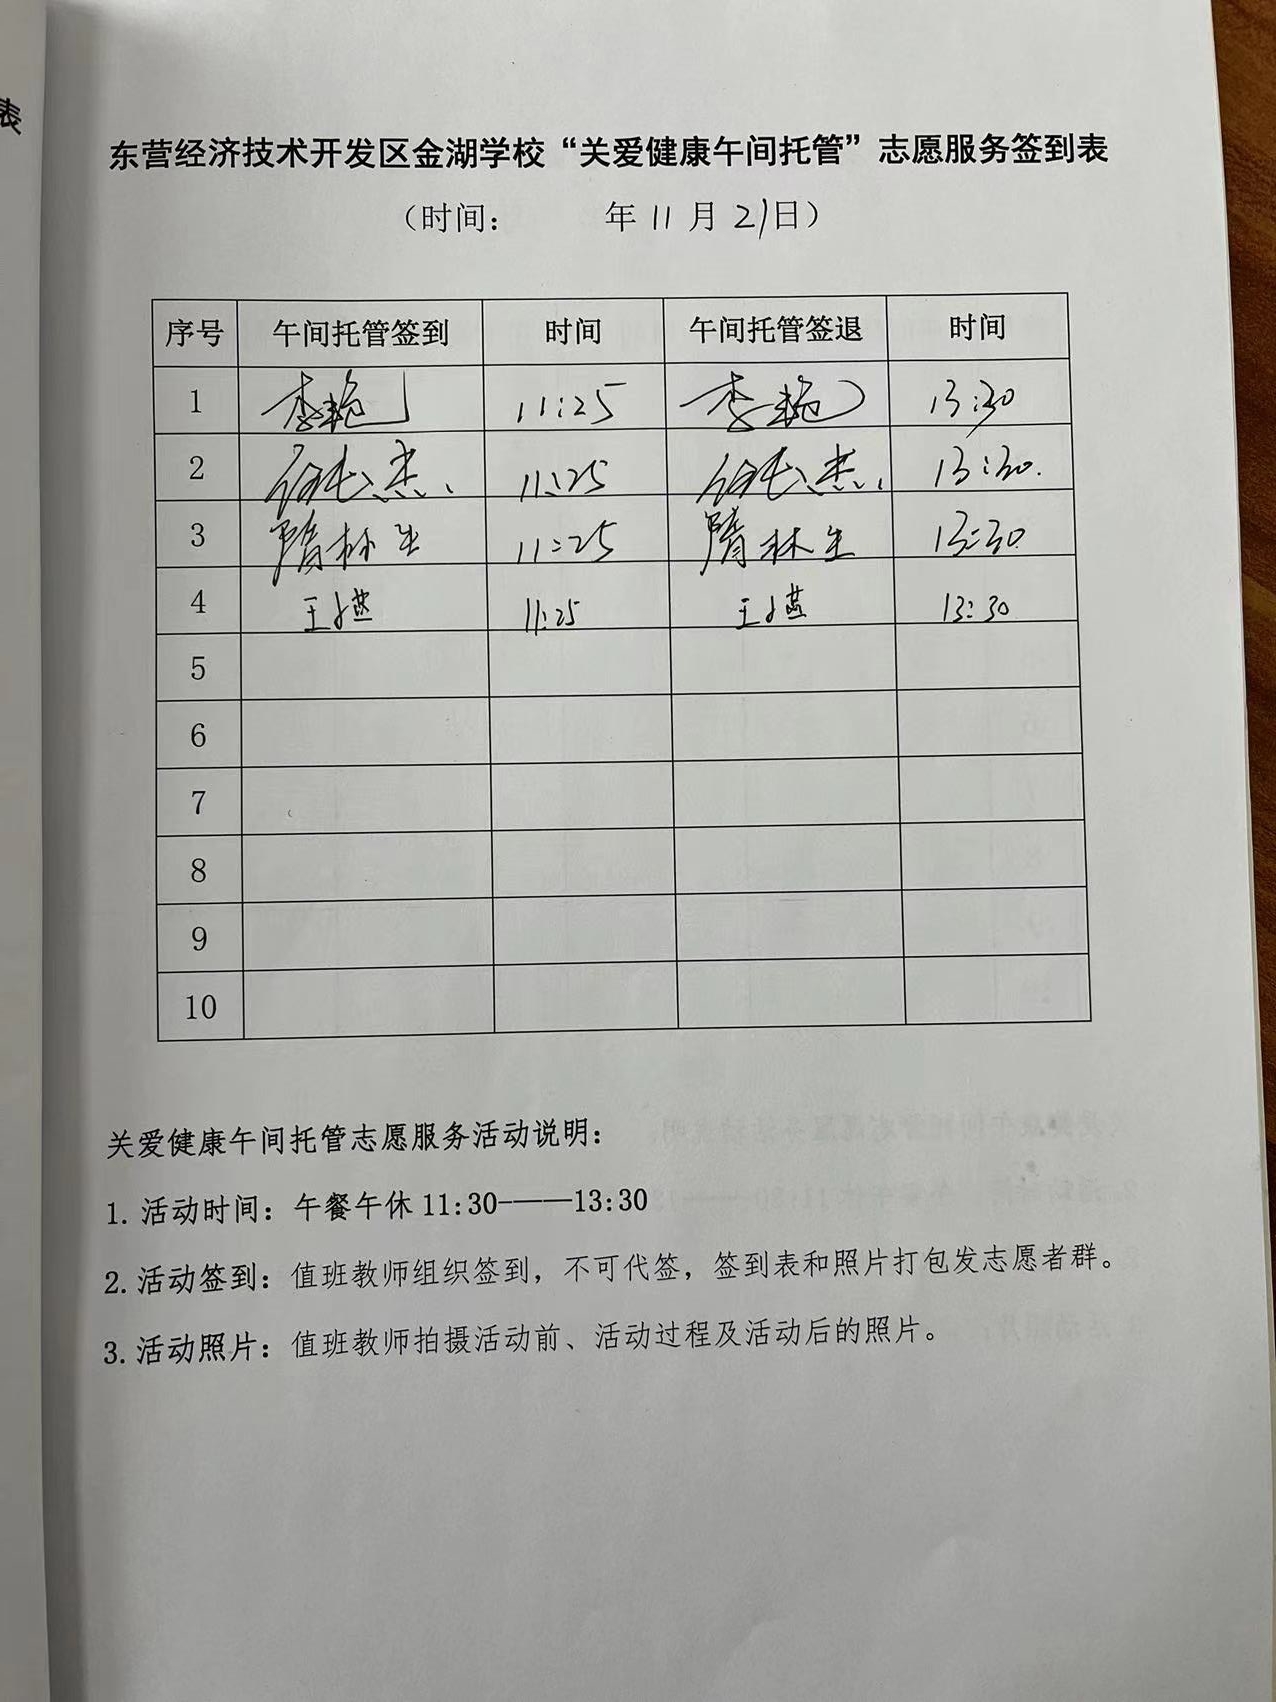 表
东营经济技术开发区金湖学校“关爱健康午间托管”志愿服务签到表
（时间： 年 11 月 21日）
序号 午间托管签到 时间 午间托管签退 时间
1 李艳 11:25 李艳 13:30
2 11:25 13:30.
3 隋林生 11:25 隋林生 13:30
4 王 燕 11:25 王 燕 13:30
5
6
7
8
9
10
关爱健康午间托管志愿服务活动说明：
1. 活动时间：午餐午休 11:30———13:30
2. 活动签到：值班教师组织签到，不可代签，签到表和照片打包发志愿者群。
3. 活动照片：值班教师拍摄活动前、活动过程及活动后的照片。